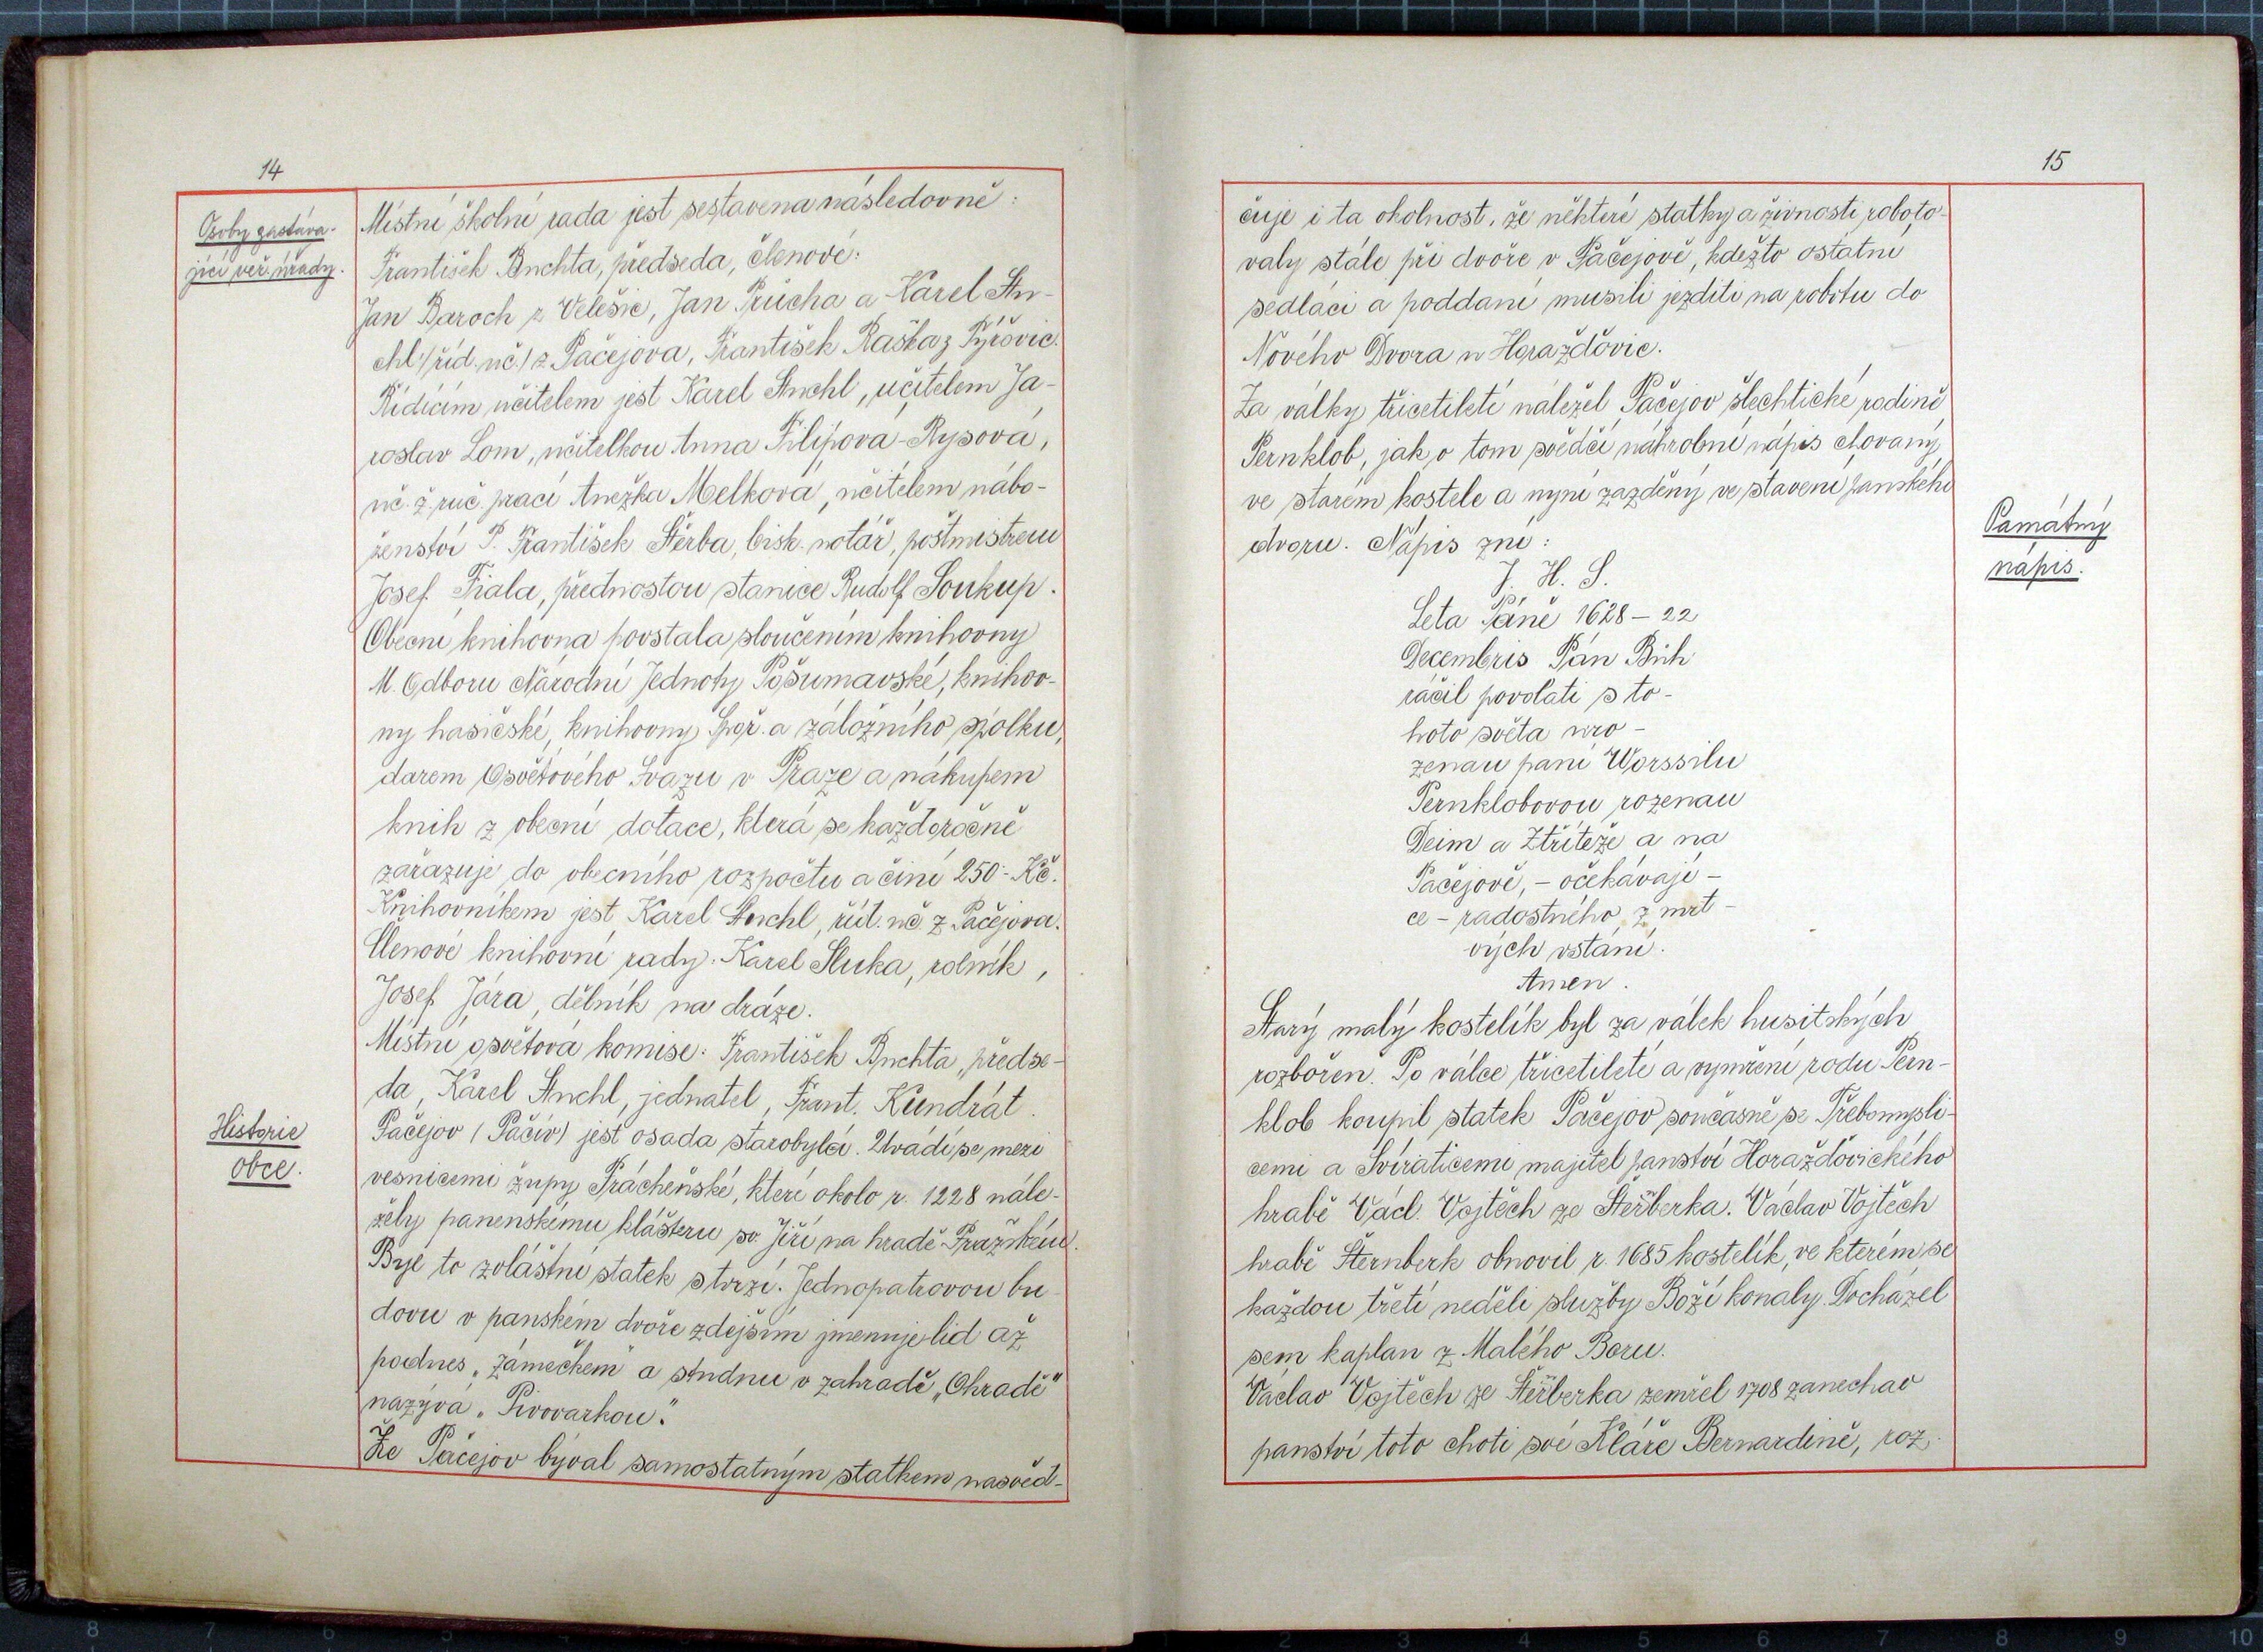 14
Osoby zastáva-
jící veř. úřady.
Místní školní rada jest sestavena následovně:
František Buchta, předseda, členové:
Jan Baroch z Velešic, Jan Průcha a Karel Stu-
chl /říd. uč./ z Pačejova, František Raška z Týřovic.
Řídícím učitelem jest Karel Stuchl, učitelem Ja-
roslav Lom, učitelkou Anna Filipová-Rysová,
uč. ž. ruč. prací Anežka Melková, učitelem nábo-
ženství P. František Štěrba, bisk. notář, poštmistrem
Josef Fiala, přednostou stanice Rudolf Soukup.
Obecní knihovna povstala sloučením knihovny
M. Odboru Národní Jednoty Pošumavské, knihov-
ny hasičské, knihovny Spoř. a záložního spolku,
darem Osvětového Svazu v Praze a nákupem
knih z obecní dotace, která se každoročně
zařazuje do obecního rozpočtu a činí 250·- Kč.
Knihovníkem jest Karel Stuchl, říd. uč. z Pačejova.
Členové knihovní rady: Karel Sluka, rolník,
Josef Jára, dělník na dráze.
Místní osvětová komise: František Buchta, předse-
da, Karel Stuchl, jednatel, Frant. Kundrát.
Historie
obce.
Pačejov (Pačív) jest osada starobylá. Uvádí se mezi
vesnicemi župy Prácheňské, které okolo r. 1228 nále-
žely panenskému klášteru sv. Jiří na hradě Pražském.
Byl to zvláštní statek s tvrzí. Jednopatrovou bu
dovu v panském dvoře zdejším jmenuje lid až
podnes „Zámečkem" a studnu v zahradě „Ohradě"
nazývá „Pivovarkou."
Že Pačejov býval samostatným statkem nasvěd-
15
čuje i ta okolnost, že některé statky a živnosti roboto-
valy stále při dvoře v Pačejově, kdežto ostatní
sedláci a poddaní musili jezditi na robotu do
Nového Dvora u Horažďovic.
Za války třicetileté náležel Pačejov šlechtické rodině
Pernklob, jak o tom svědčí náhrobní nápis chovaný
ve starém kostele a nyní zazděný ve stavení panského
dvoru. Nápis zní:
Památný
nápis.
J. H. S.
Leta Páně 1628 – 22
Decembris Pán Bůh
ráčil povolati s to-
hoto světa uro-
zenau paní Worssilu
Pernklobovou rozenau
Deim a Ztřiteže a na
Pačejově, – očekávají-
ce – radostného z mrt-
vých vstání.
Amen.
Starý malý kostelík byl za válek husitských
rozbořen. Po válce třicetileté a vymření rodu Pern-
klob koupil statek Pačejov současně se Třebomysli-
cemi a Svíraticemi majitel panství Horažďovického
hrabě Václ. Vojtěch ze Šternberka. Václav Vojtěch
hrabě Šternberk obnovil r. 1685 kostelík, ve kterém se
každou třetí neděli služby Boží konaly. Docházel
sem kaplan z Malého Boru.
Václav Vojtěch ze Šternberka zemřel 1708 zanechav
panství toto choti své Kláře Bernardině, roz.